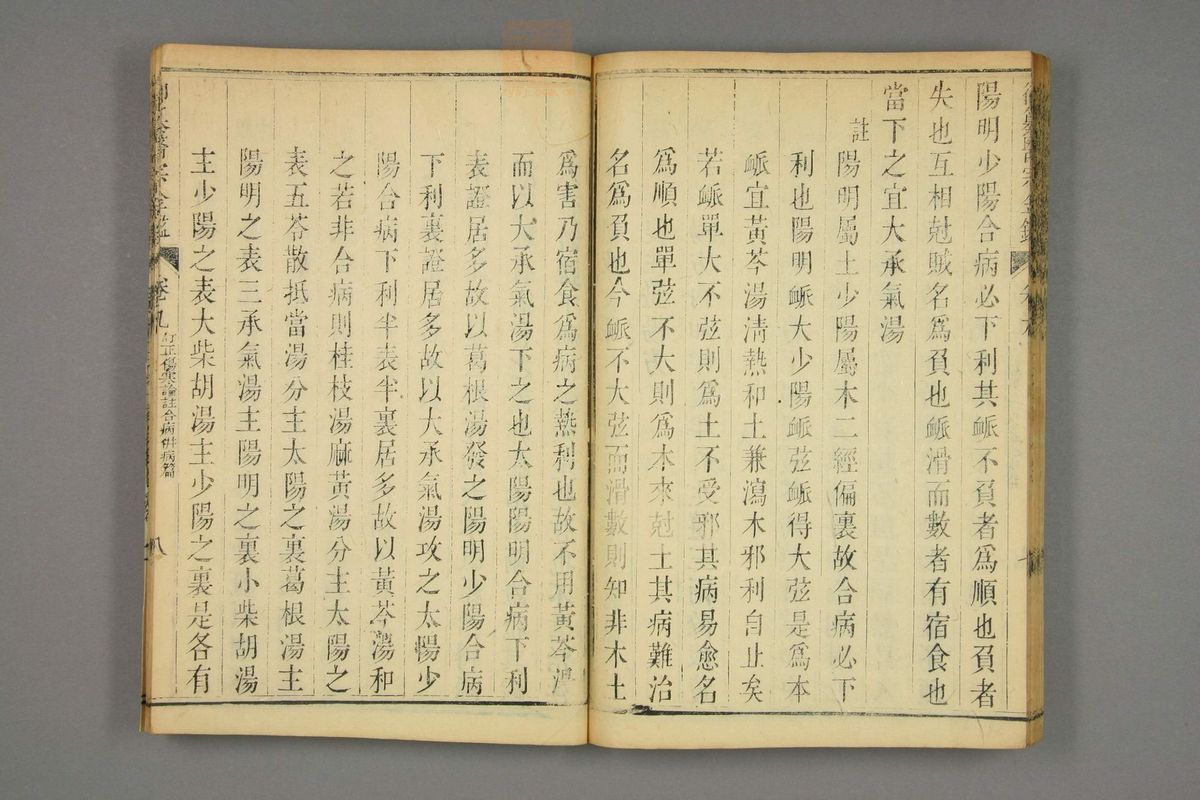 陽明少陽合病必下利其脈不負者為順也負者
失也互相尅賊名為負也脈滑而數者有宿食也
當下之宜大承氣湯
註
陽明屬土少陽屬木二經偏裏故合病必下
利也陽明脈大少陽脈弦脈得大弦是為本
脈宜黃芩湯淸熱和土兼瀉木邪利自止矣
若脈單大不弦則為土不受邪其病易愈名
為順也單弦不大則為木來尅土其病難治
名為負也今脈不大弦而滑數則知非木土
為害乃宿食為病之熱利也故不用黃芩湯
而以大承氣湯下之也太陽陽明合病下利
表證居多故以葛根湯發之陽明少陽合病
下利裏證居多故以大承氣湯攻之太陽少
陽合病下利半表半裏居多故以黃芩湯和
之若非合病則桂枝湯麻黃湯分主太陽之
表五苓散抵當湯分主太陽之裏葛根湯主
陽明之表三承氣湯主陽明之裏小柴胡湯
主少陽之表大柴胡湯主少陽之裏是各有
卷九
訂正傷寒論註合病併病篇
八